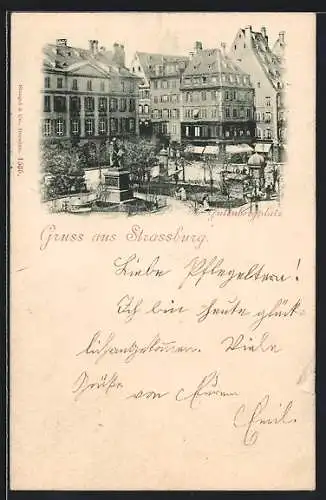 Gutenbergplatz
Gruss aus Strassburg.
Stengel & Co., Dresden. 1526.
Liebe Pflegeltern!
Ich bin heute glück-
lich angekommen. Viele
Grüße von Eurem
Emil.